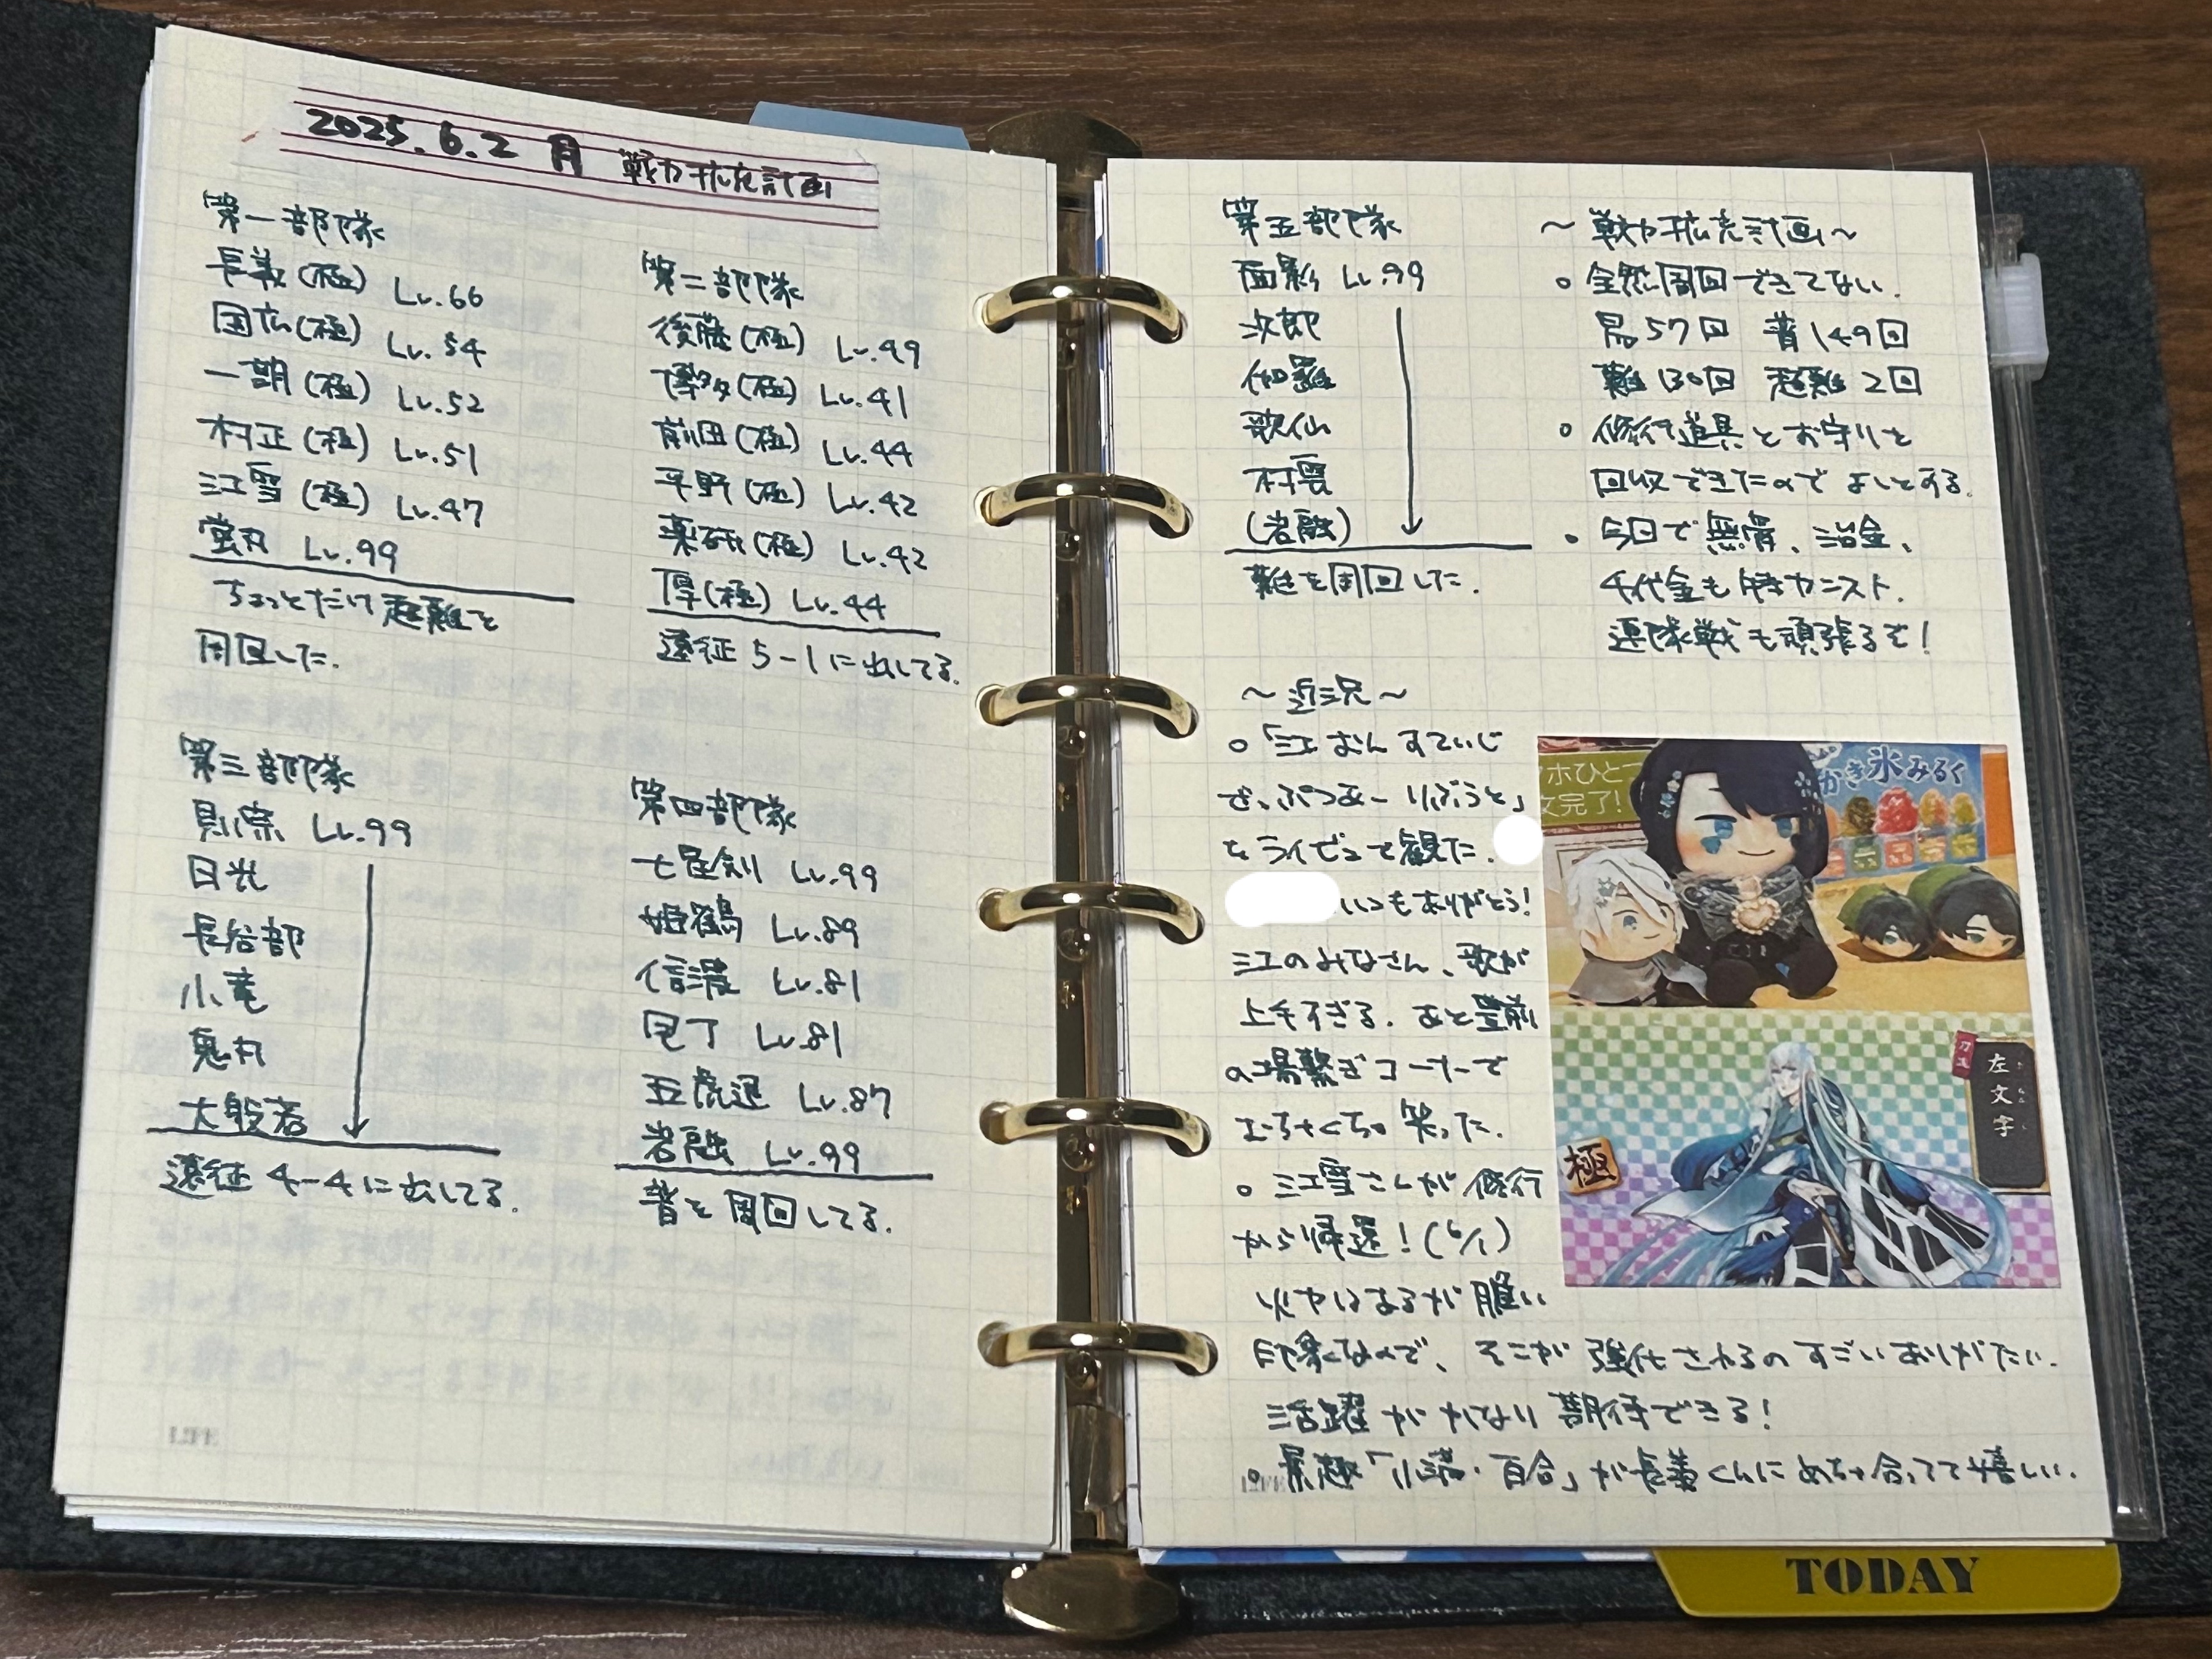 2025.6.2 月 戦力拡充計画
第一部隊
長義(極) Lv.66
国広(極) Lv.54
一期(極) Lv.52
村正(極) Lv.51
江雪(極) Lv.47
蛍丸 Lv.99
ちょっとだけ超難を
周回した.
第二部隊
後藤(極) Lv.49
博多(極) Lv.41
前田(極) Lv.44
平野(極) Lv.42
薬研(極) Lv.42
厚(極) Lv.44
遠征 5-1に出してる.
第三部隊
則宗 Lv.99
日光
長谷部
小竜
鬼丸
大般若
遠征 4-4に出してる.
第四部隊
七星剣 Lv.99
姫鶴 Lv.89
信濃 Lv.81
包丁 Lv.81
五虎退 Lv.87
岩融 Lv.99
普を周回してる.
第五部隊
面影 Lv.99
次郎
伽羅
歌仙
村雲
(岩融)
難を周回した.
〜戦力拡充計画〜
○全然周回できてない.
易57回 普149回
難130回 超難2回
○修行道具とお守りを
回収できたのでよしとする.
○今日で無骨、治金、
千代金も特カンスト.
連隊戦も頑張るぞ!
〜近況〜
○「江おんすていじ
ぜっぷつあーりぶうと」
をライビュで観た.
いつもありがとう!
江のみなさん、歌が
上手すぎる. あと豊前
の場繋ぎコーナーで
むちゃくちゃ笑った.
○江雪さんが修行
から帰還!(6/1)
火力はあるが脆い
印象なので、そこが強化されるのすごいありがたい.
活躍がかなり期待できる!
○景趣「小満・百合」が長義くんにめちゃ合ってて嬉しい.
ホひとー
文完了!
かき氷みるく
刀工
左文字
極
LIFE
TODAY